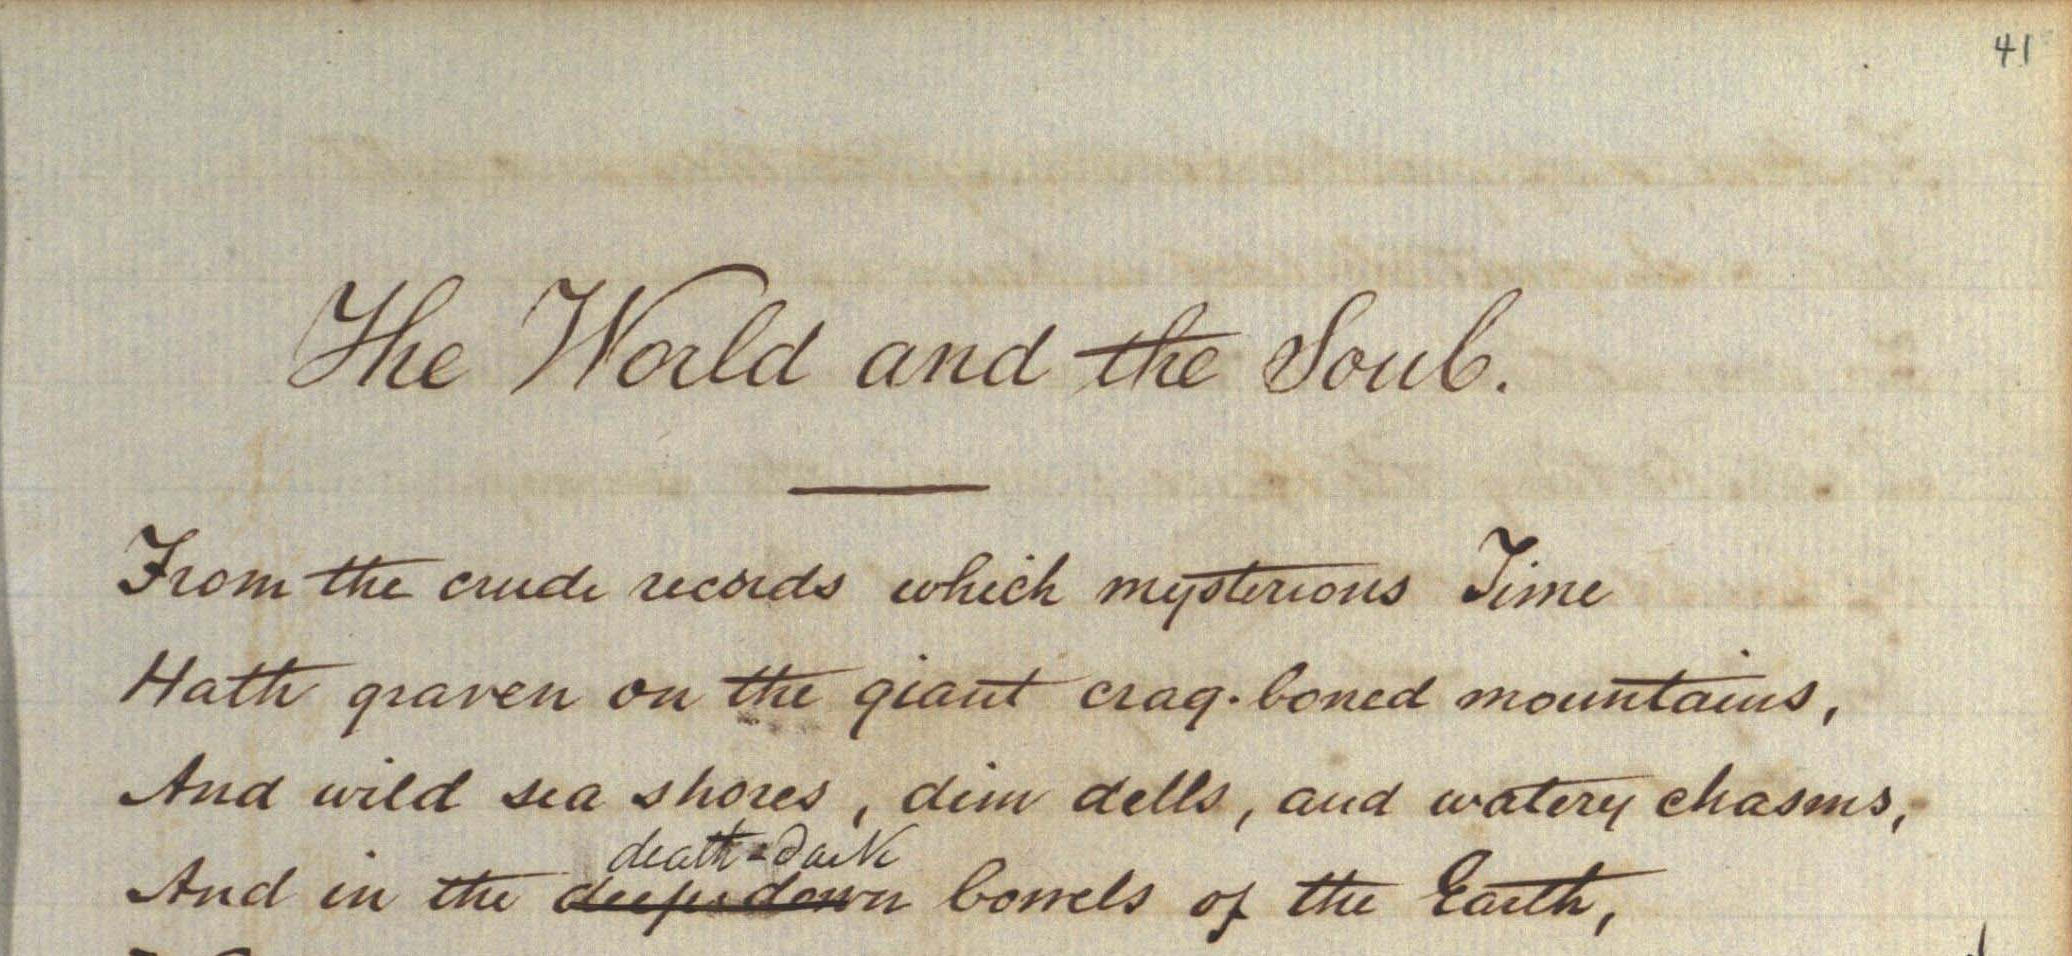 41
The World and the Soul.
From the crude records which mysterious Time
Hath graven on the giant crag-boned mountains,
And wild sea shores, dim dells, and watery chasms,
death-dark
And in the deep-down bowels of the Earth,